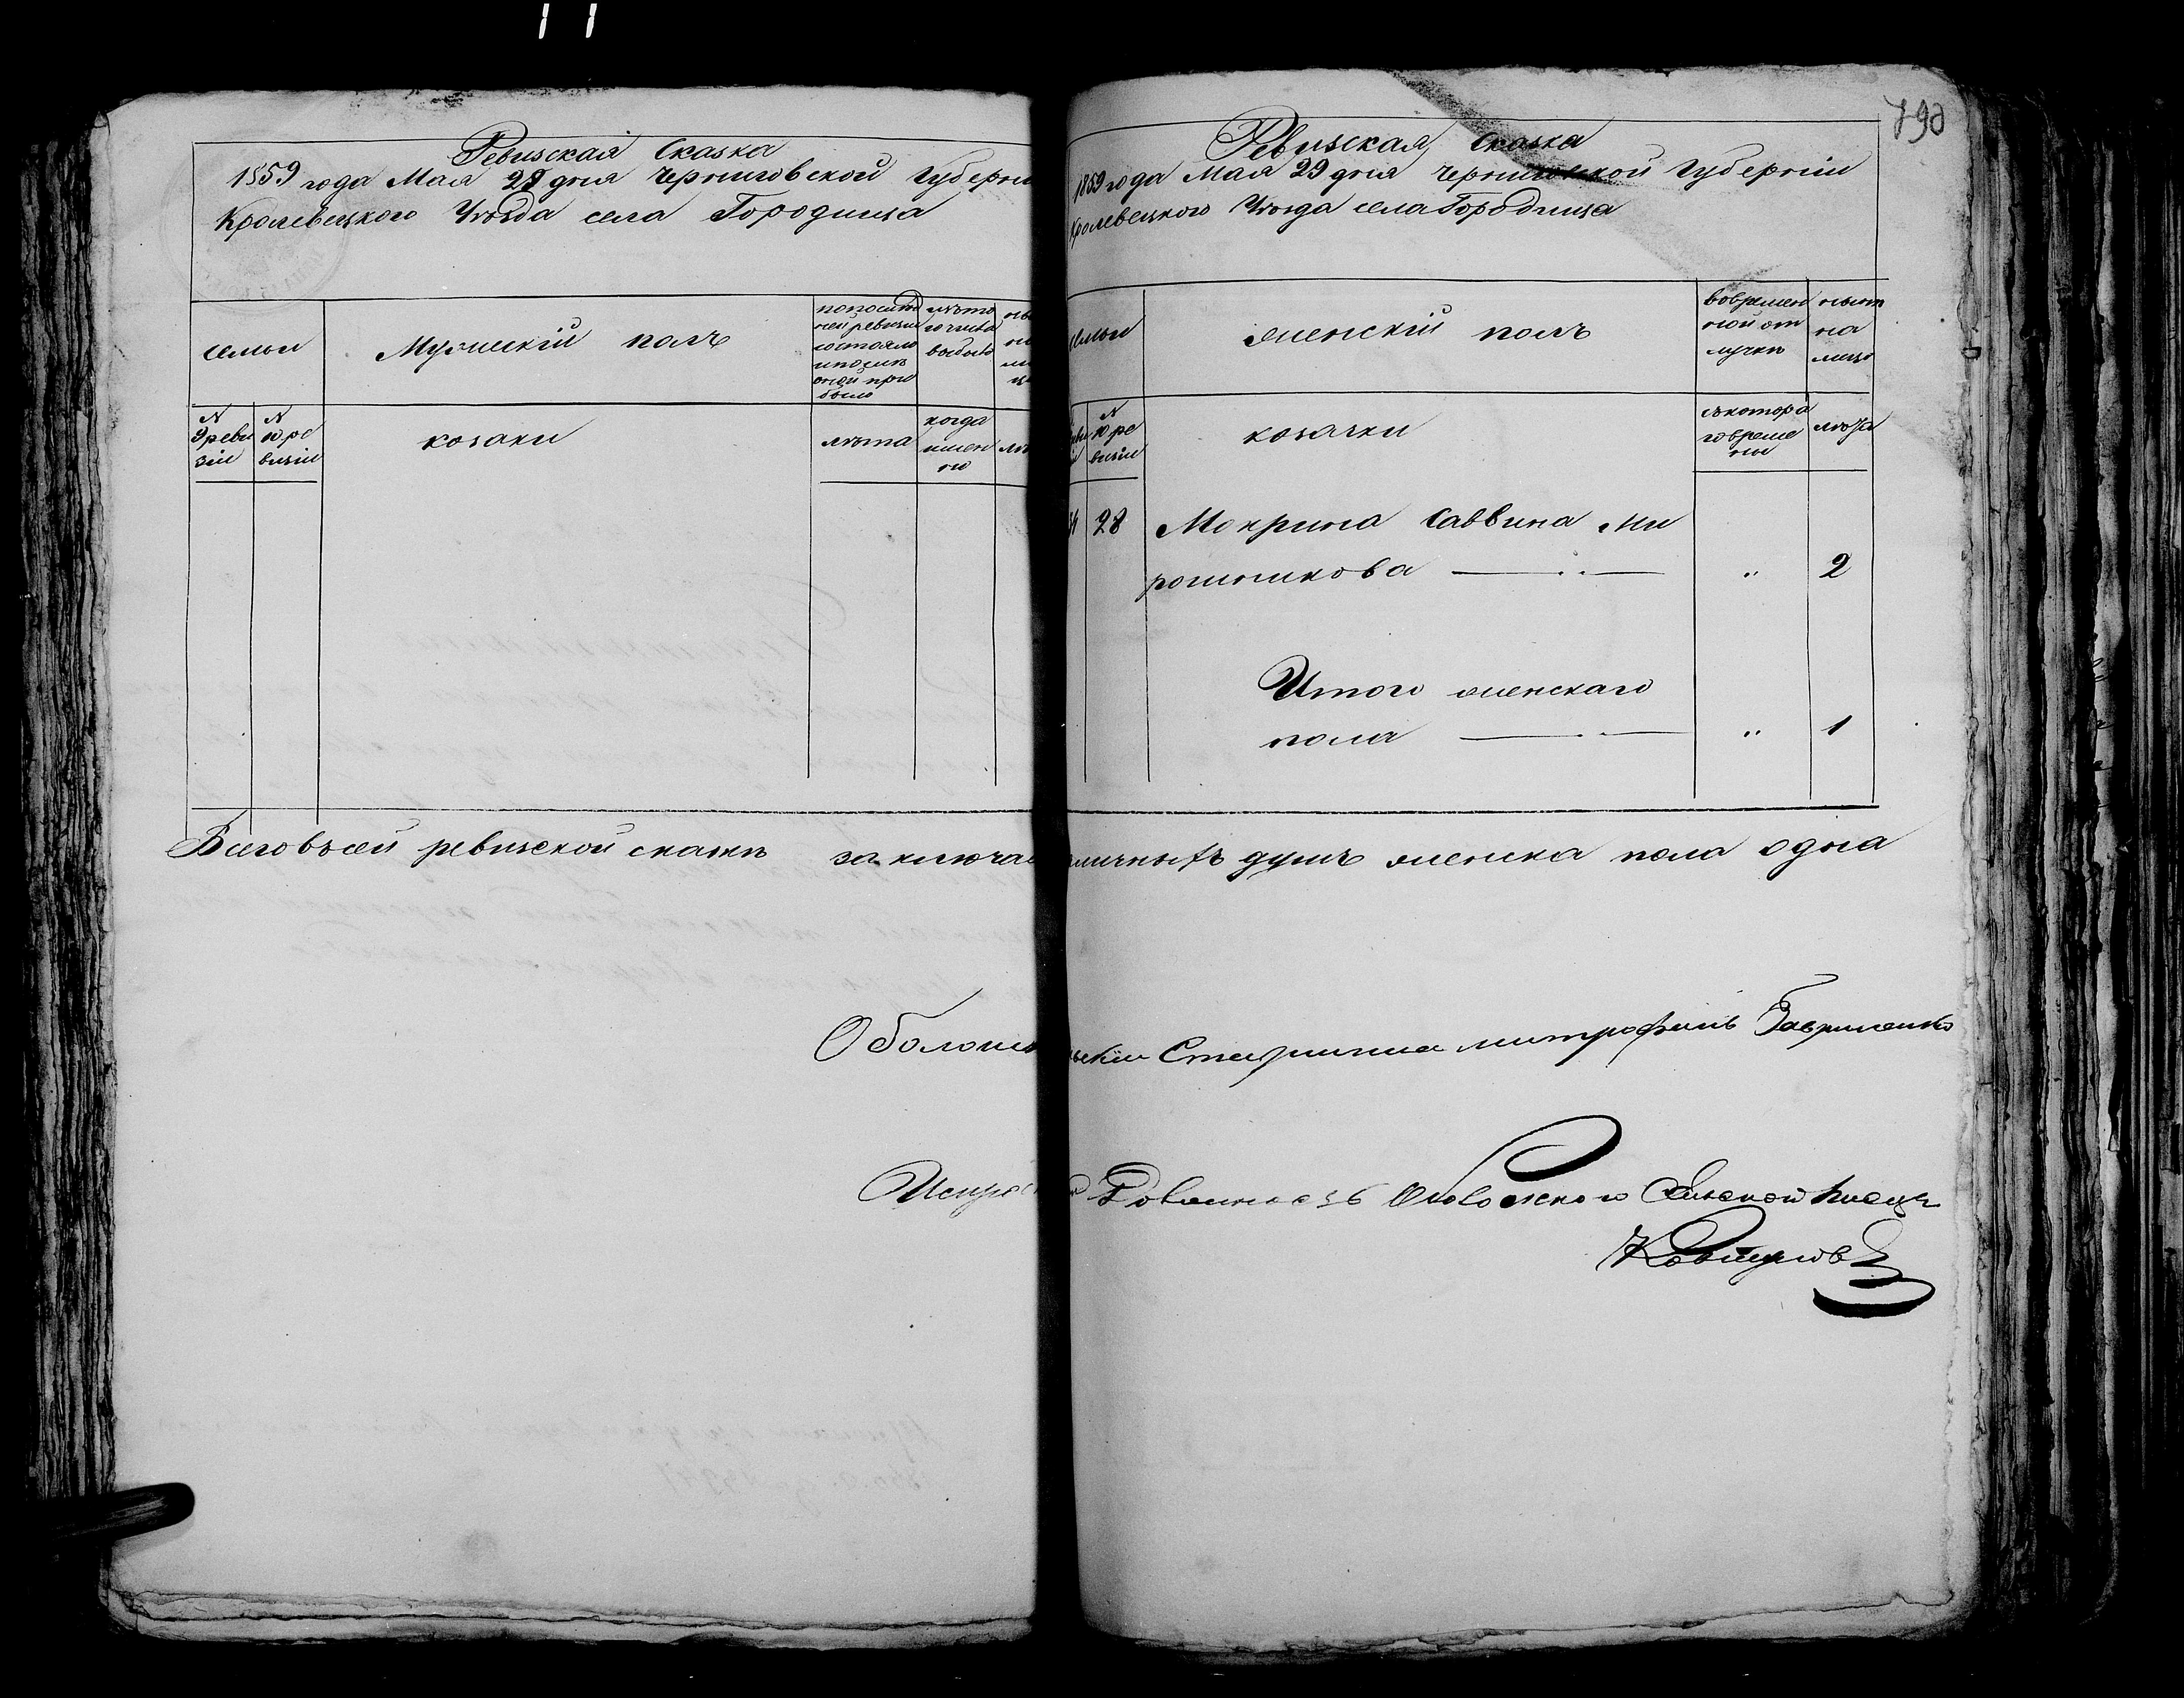 790
Ревизская Сказка
1859 года Мая 29 дня Черниговской Губерни
Кролевецкого Уѣзда села Городища
семьи
Мужескій полъ
по послѣд
ней ревизіи
состояло
и послѣ
оной при
было
изъ то
го числа
выбыло
N
9 реви
зіи
N
10 ре
визіи
козаки
лѣта
когда
имен
но
Ревизская Сказка
1859 года Мая 29 дня Черниговской Губерніи
Кролевецкого Уѣзда села Городища
семьи
женскій полъ
во времен
ной от
лучкѣ
нынѣ
на
лицо
N
10 ре
визіи
козачки
съ котора
го време
ни
лѣта
28 Мокрина Саввина Ми
рошникова — . . — „ 2
Итого женскаго
пола — . — „ 1
Всего в сей ревизской сказкѣ заключае
личныхъ душъ женска пола одна
Оболонс
ьскій Старшина Митрофанъ Гавриленко
Писецъ